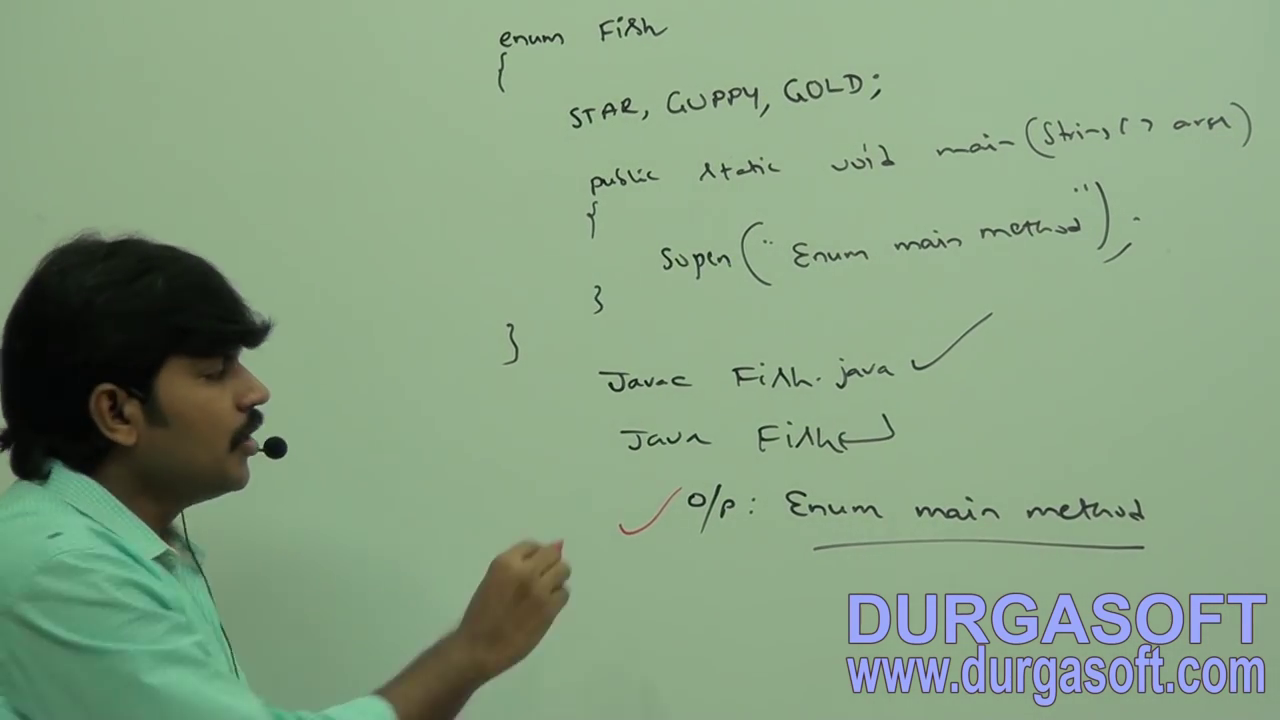 enum Fish
{
STAR, GUPPY, GOLD;
public static void main(String[] args)
{
Sopen("Enum main method");
}
}
Javac Fish.java
Java Fish
O/P: Enum main method
DURGASOFT
www.durgasoft.com